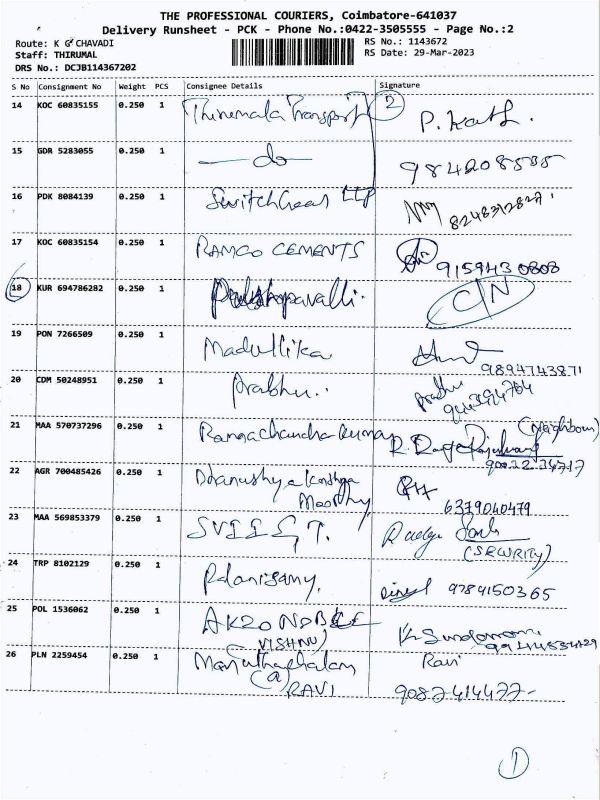 THE PROFESSIONAL COURIERS, Coimbatore-641037
Delivery Runsheet - PCK - Phone No.:0422-3505555 - Page No.:2
Route: K G CHAVADI
RS No.: 1143672
Staff: THIRUMAL
RS Date: 29-Mar-2023
DRS No.: DCJB114367202
S No Consignment No Weight PCS Consignee Details Signature
14 KOC 60835155 0.250 1 Thirumala Transport 2 P.
15 GDR 5283055 0.250 1 — do —
16 PDK 8084139 0.250 1 SwitchGear LLP 8248312827
17 KOC 60835154 0.250 1 RAMCO CEMENTS 9159430808
18 KUR 694786282 0.250 1 C/N
19 PON 7266509 0.250 1 Madullika 9894743871
20 CDM 50248951 0.250 1 Prabhu.. Prabhu
21 MAA 570737296 0.250 1 Ramachandra Kumar (Neighbour)
22 AGR 700485426 0.250 1 Moorthy 6379040479
23 MAA 569853379 0.250 1
(SEWRITY)
24 TRP 8102129 0.250 1 Palanisamy. 9789150365
25 POL 1536062 0.250 1 AKZO NOBEL
(VISHNU)
26 PLN 2259454 0.250 1 Ravi
(a) RAVI 9087414477-
1